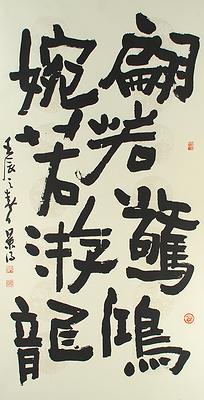 翩若驚鴻
婉若游龍
壬辰之春月